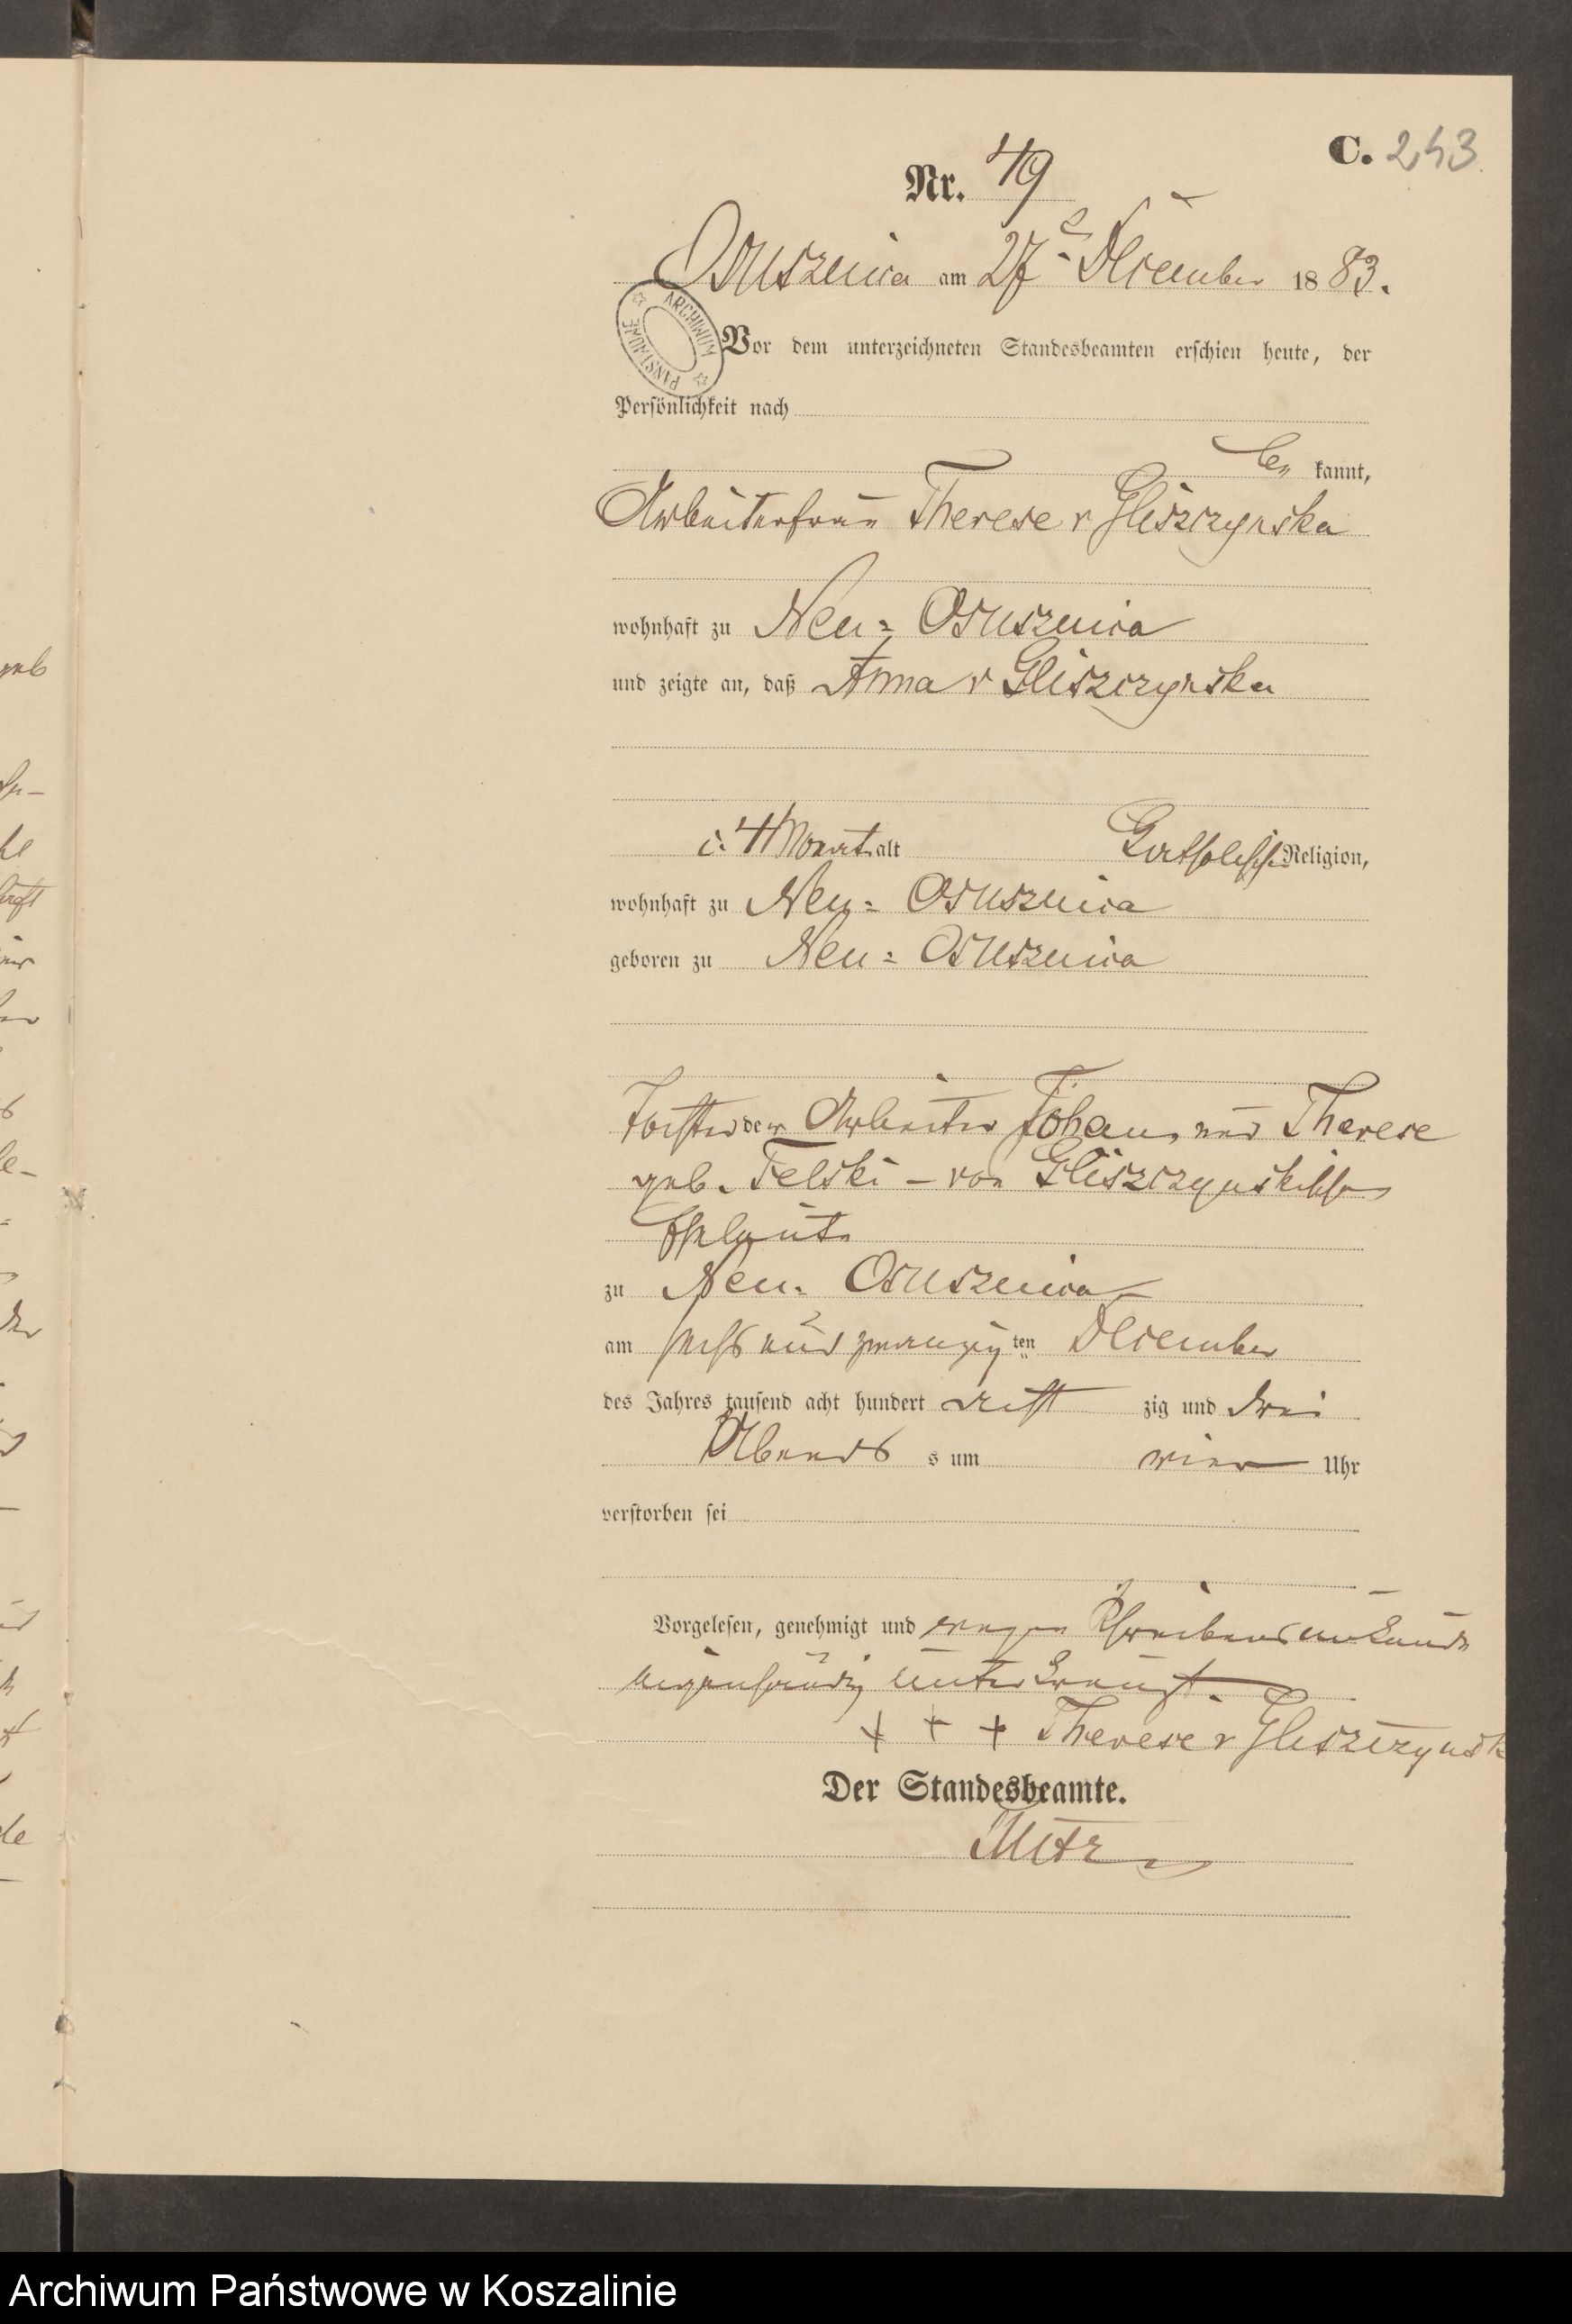 C. 243
Nr. 49
Osusznica am 27t December 1883.
ARCHIWUM PAŃSTWOWE
Vor dem unterzeichneten Standesbeamten erschien heute, der
Persönlichkeit nach
be kannt,
Arbeiterfrau Therese v Gliszczynska
wohnhaft zu Neu-Osusznica
und zeigte an, daß Anna v Gliszczynska
4 Monat alt katholischer Religion,
wohnhaft zu Neu-Osusznica
geboren zu Neu-Osusznica
Tochter der Arbeiter Johann und Therese
geb. Felski - von Gliszczynskischen
Eheleute
zu Neu-Osusznica
am sechs und zwanzigten December
des Jahres tausend acht hundert acht zig und drei
Abends s um vier Uhr
verstorben sei
Vorgelesen, genehmigt und wegen Schreibensunkunde
eigenhändig unterkreuzt.
+ + + Therese v Gliszczynsk
Der Standesbeamte.
Archiwum Państwowe w Koszalinie